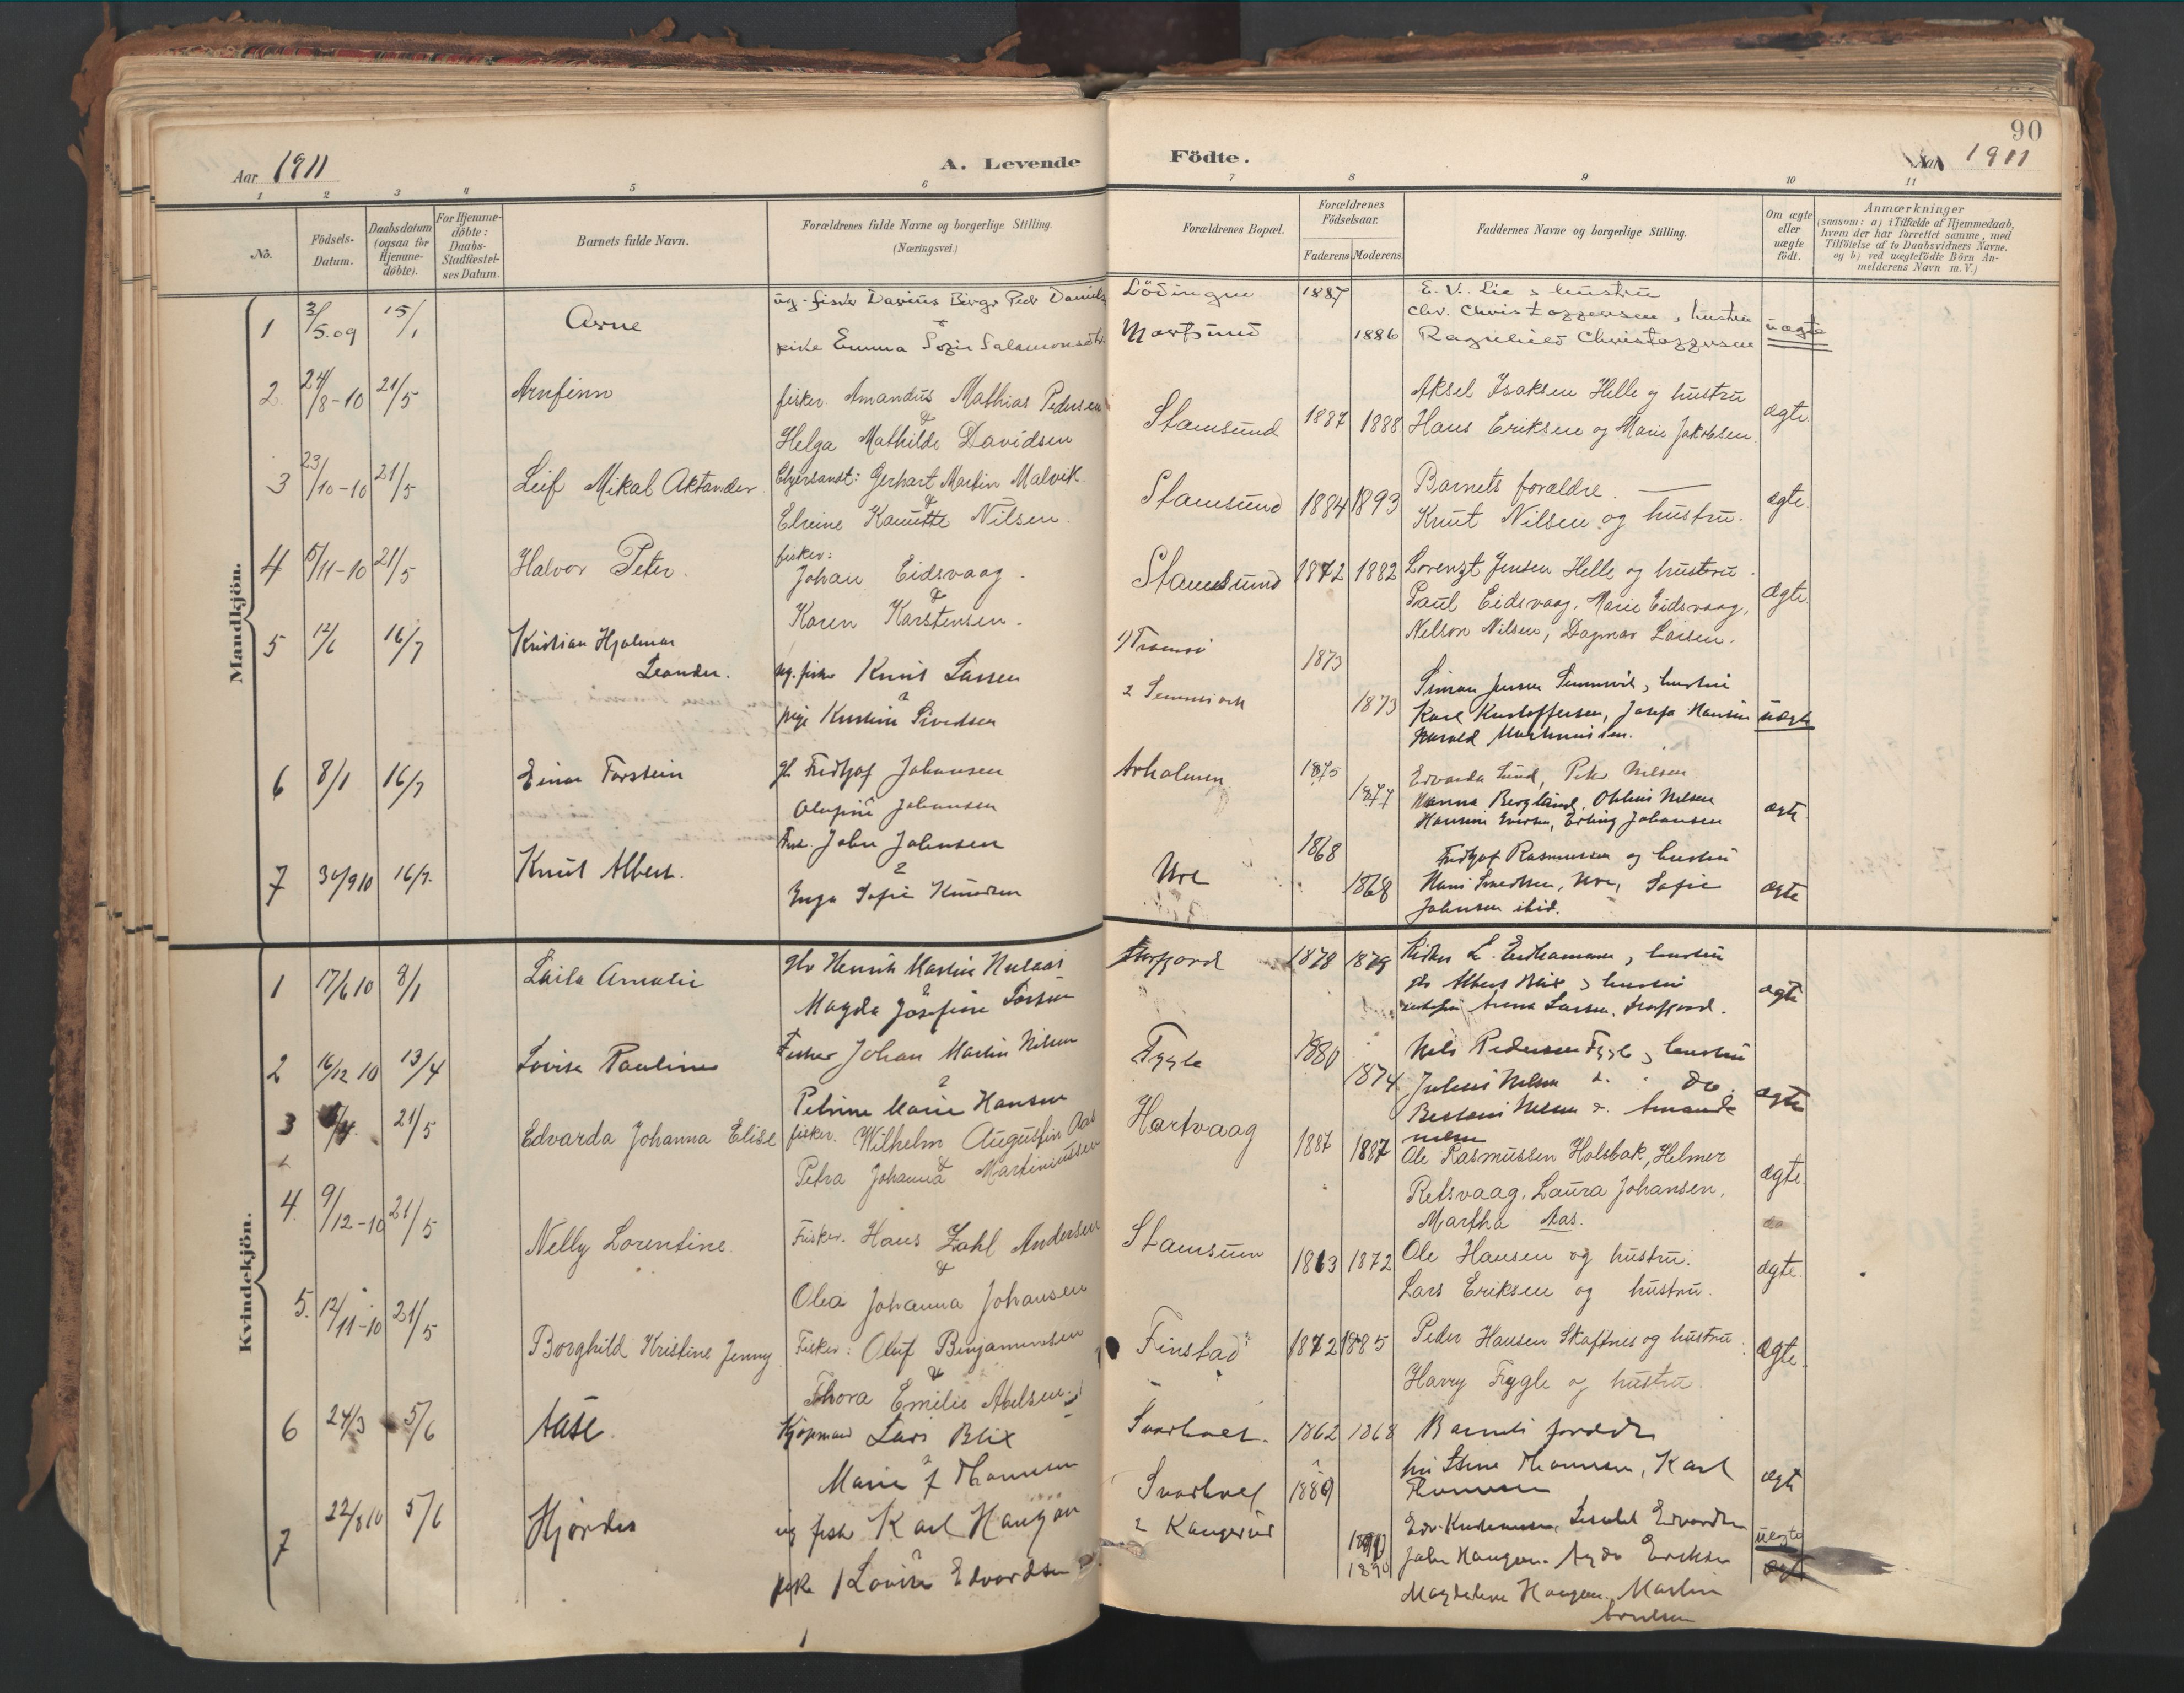 90
Aar 1911
A. Levende Födte.
Aar 1911
1 2 3 4 5 6 7 8 9 10 11
No.
Födsels-Datum.
Daabsdatum (ogsaa for Hjemme-döbte).
For Hjemme-döbte: Daabs-Stadfæstel-ses Datum.
Barnets fulde Navn.
Forældrenes fulde Navne og borgerlige Stilling.
(Næringsvei.)
Forældrenes Bopæl.
Forældrenes Födselsaar.
Faderens Moderens.
Faddernes Navne og borgerlige Stilling.
Om ægte eller uægte født.
Anmærkninger
(saasom: a) i Tilfælde af Hjemmedaab,
hvem der har forrettet samme, med
Tilföielse af to Daabsvidners Navne.
og b) ved uægtefödte Börn An-
melderens Navn m. V.)
Mandkjön.
1 3/5.09 15/1 Arne
ug. fisker Darius Birger Peder Daniels
pike Emma Sofie Salamonsdtr
Lödingen 1887
Mortsund 1886
E. V. Lie & hustru
Chr. Christoffersen, hustru
Ragnhild Christoffersen
uægte
2 24/8-10 21/5 Arnfinn
fisker. Amandus Mathias Pedersen
&
Helga Mathilde Davidsen
Stamsund 1887 1888
Aksel Isaksen Helle og hustru
Hans Eriksen og Marie Jakobsen.
ægte
3 23/10-10 21/5 Leif Mikal Aktander
Gerhart Martin Malvik.
&
Elreine Kanutte Nilsen.
Stamsund 1884 1893
Barnets forældre.
Knut Nilsen og hustru.
ægte.
4 5/11-10 21/5 Halvor Peter.
fisker:
Johan Eidsvaag.
&
Karen Karstensen.
Stamsund 1872 1882
Lorenzt Jensen Helle og hustru.
Paul Eidsvaag, Marie Eidsvaag,
Nelson Nilsen, Dagmar Larsen.
ægte.
5 12/6 16/7 Kristian Hjalmar
Leander.
ug. fisker Knut Larsen
&
pige Kristine Sivertsen
1) Tromsö 1873
2 1873
Simon Jensen, hustru
Karl Kristoffersen, Josefa Hansen
Harald Martinussen.
uægte
6 8/1 16/7 Einar Torstein
Fridtjof Johansen
Olufine Johansen
Arholmen 1875 1877
Edvarda Lund, Peder Nilsen
Hanna Berglund, Nilsen
Hansine Iversen, Erling Johansen
ægte
7 30/9 10 16/7. Knut Albert.
Fisk. John Johnsen
&
Inga Sofie Knudsen
Ure 1868 1868
Fridtjof Rasmussen og hustru
Hans, Ure, Sofie
Johnsen ibid.
ægte
Kvindekjön.
1 17/6 10 8/1 Laila Amalie
Henrik Martin
&
Magda Josefine
Storfjord 1878 1879
hustru
Albert Blix & hustru
Anna Larsen, Storfjord.
ægte
2 16/12 10 13/4 Lovise Pauline
Fisker Johan Martin Nilsen
&
Petrine Marie Hansen
Fygle 1880 1874
Nils Pedersen Fygle & hustru
Julius Nilsen do.
Nilsen & Amanda
Nilsen
ægte
3 21/5 Edvarda Johanna Elise
fisker. Wilhelm Augustin Aas
&
Petra Johanna Martiniussen
Hartvaag 1887 1887
Ole Rasmussen Holsbak, Helmer
Retsvaag, Laura Johansen,
Martha Aas.
ægte.
4. 9/12-10 21/5 Nelly Lorentine.
Fisker. Hans Zahl Andersen
&
Olea Johanna Johansen
Stamsund 1863 1872
Ole Hansen og hustru.
Lars Eriksen og hustru.
ægte.
5. 12/11-10 21/5 Borghild Kristine Jenny
Fisker: Oluf Benjaminsen
&
Thora Emilie Abelsen
Finstad 1872 1885
Peder Hansen Skaftnes og hustru.
Harry Fygle og hustru.
ægte.
6 24/3 5/6 Aase.
Kjöpmand Lars Blix
&
Marie f. Thomesen
Svarholt. 1862 1868
Barnets forældre
Stine Thomesen, Karl
Thomesen
ægte
7 22/8 10 5/6 Hjördis
ug fisker Karl Haugan
pike Lovise Edvardsen
Svarholt 1889
2 1890
1890
Edvardsen
John Haugan. Eriksen
Magdalene Haugan, Martin
Arntsen
uægte
ægte